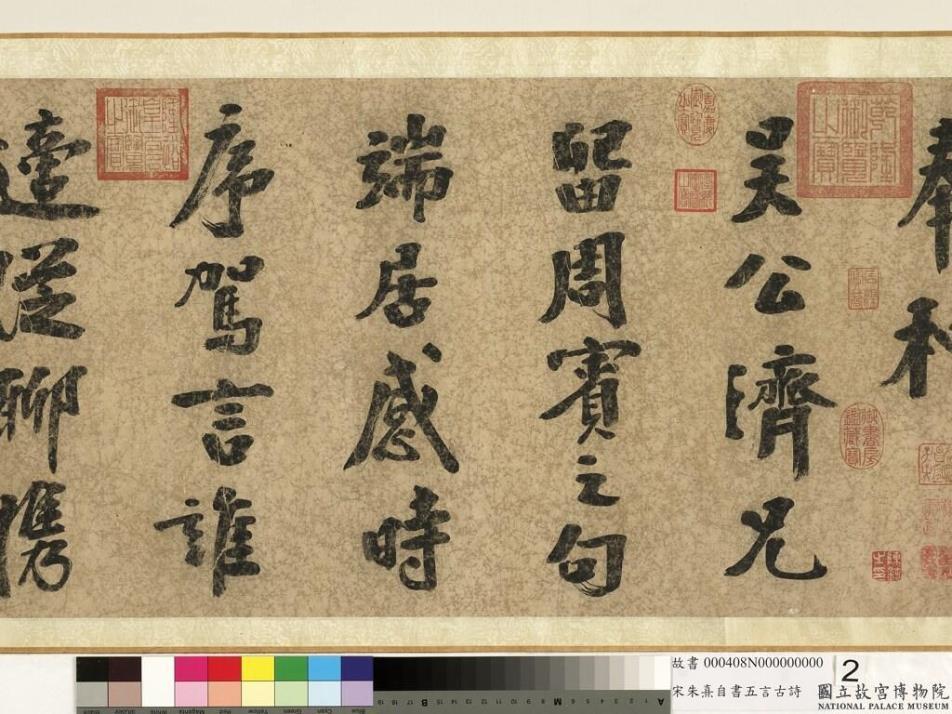 奉和
吳公濟兄
留周賓之句
端居感時
序駕言誰
適從聊携
乾隆御覽之寶
故書 000408N000000000
宋朱熹自書五言古詩
2
國立故宮博物院
NATIONAL PALACE MUSEUM